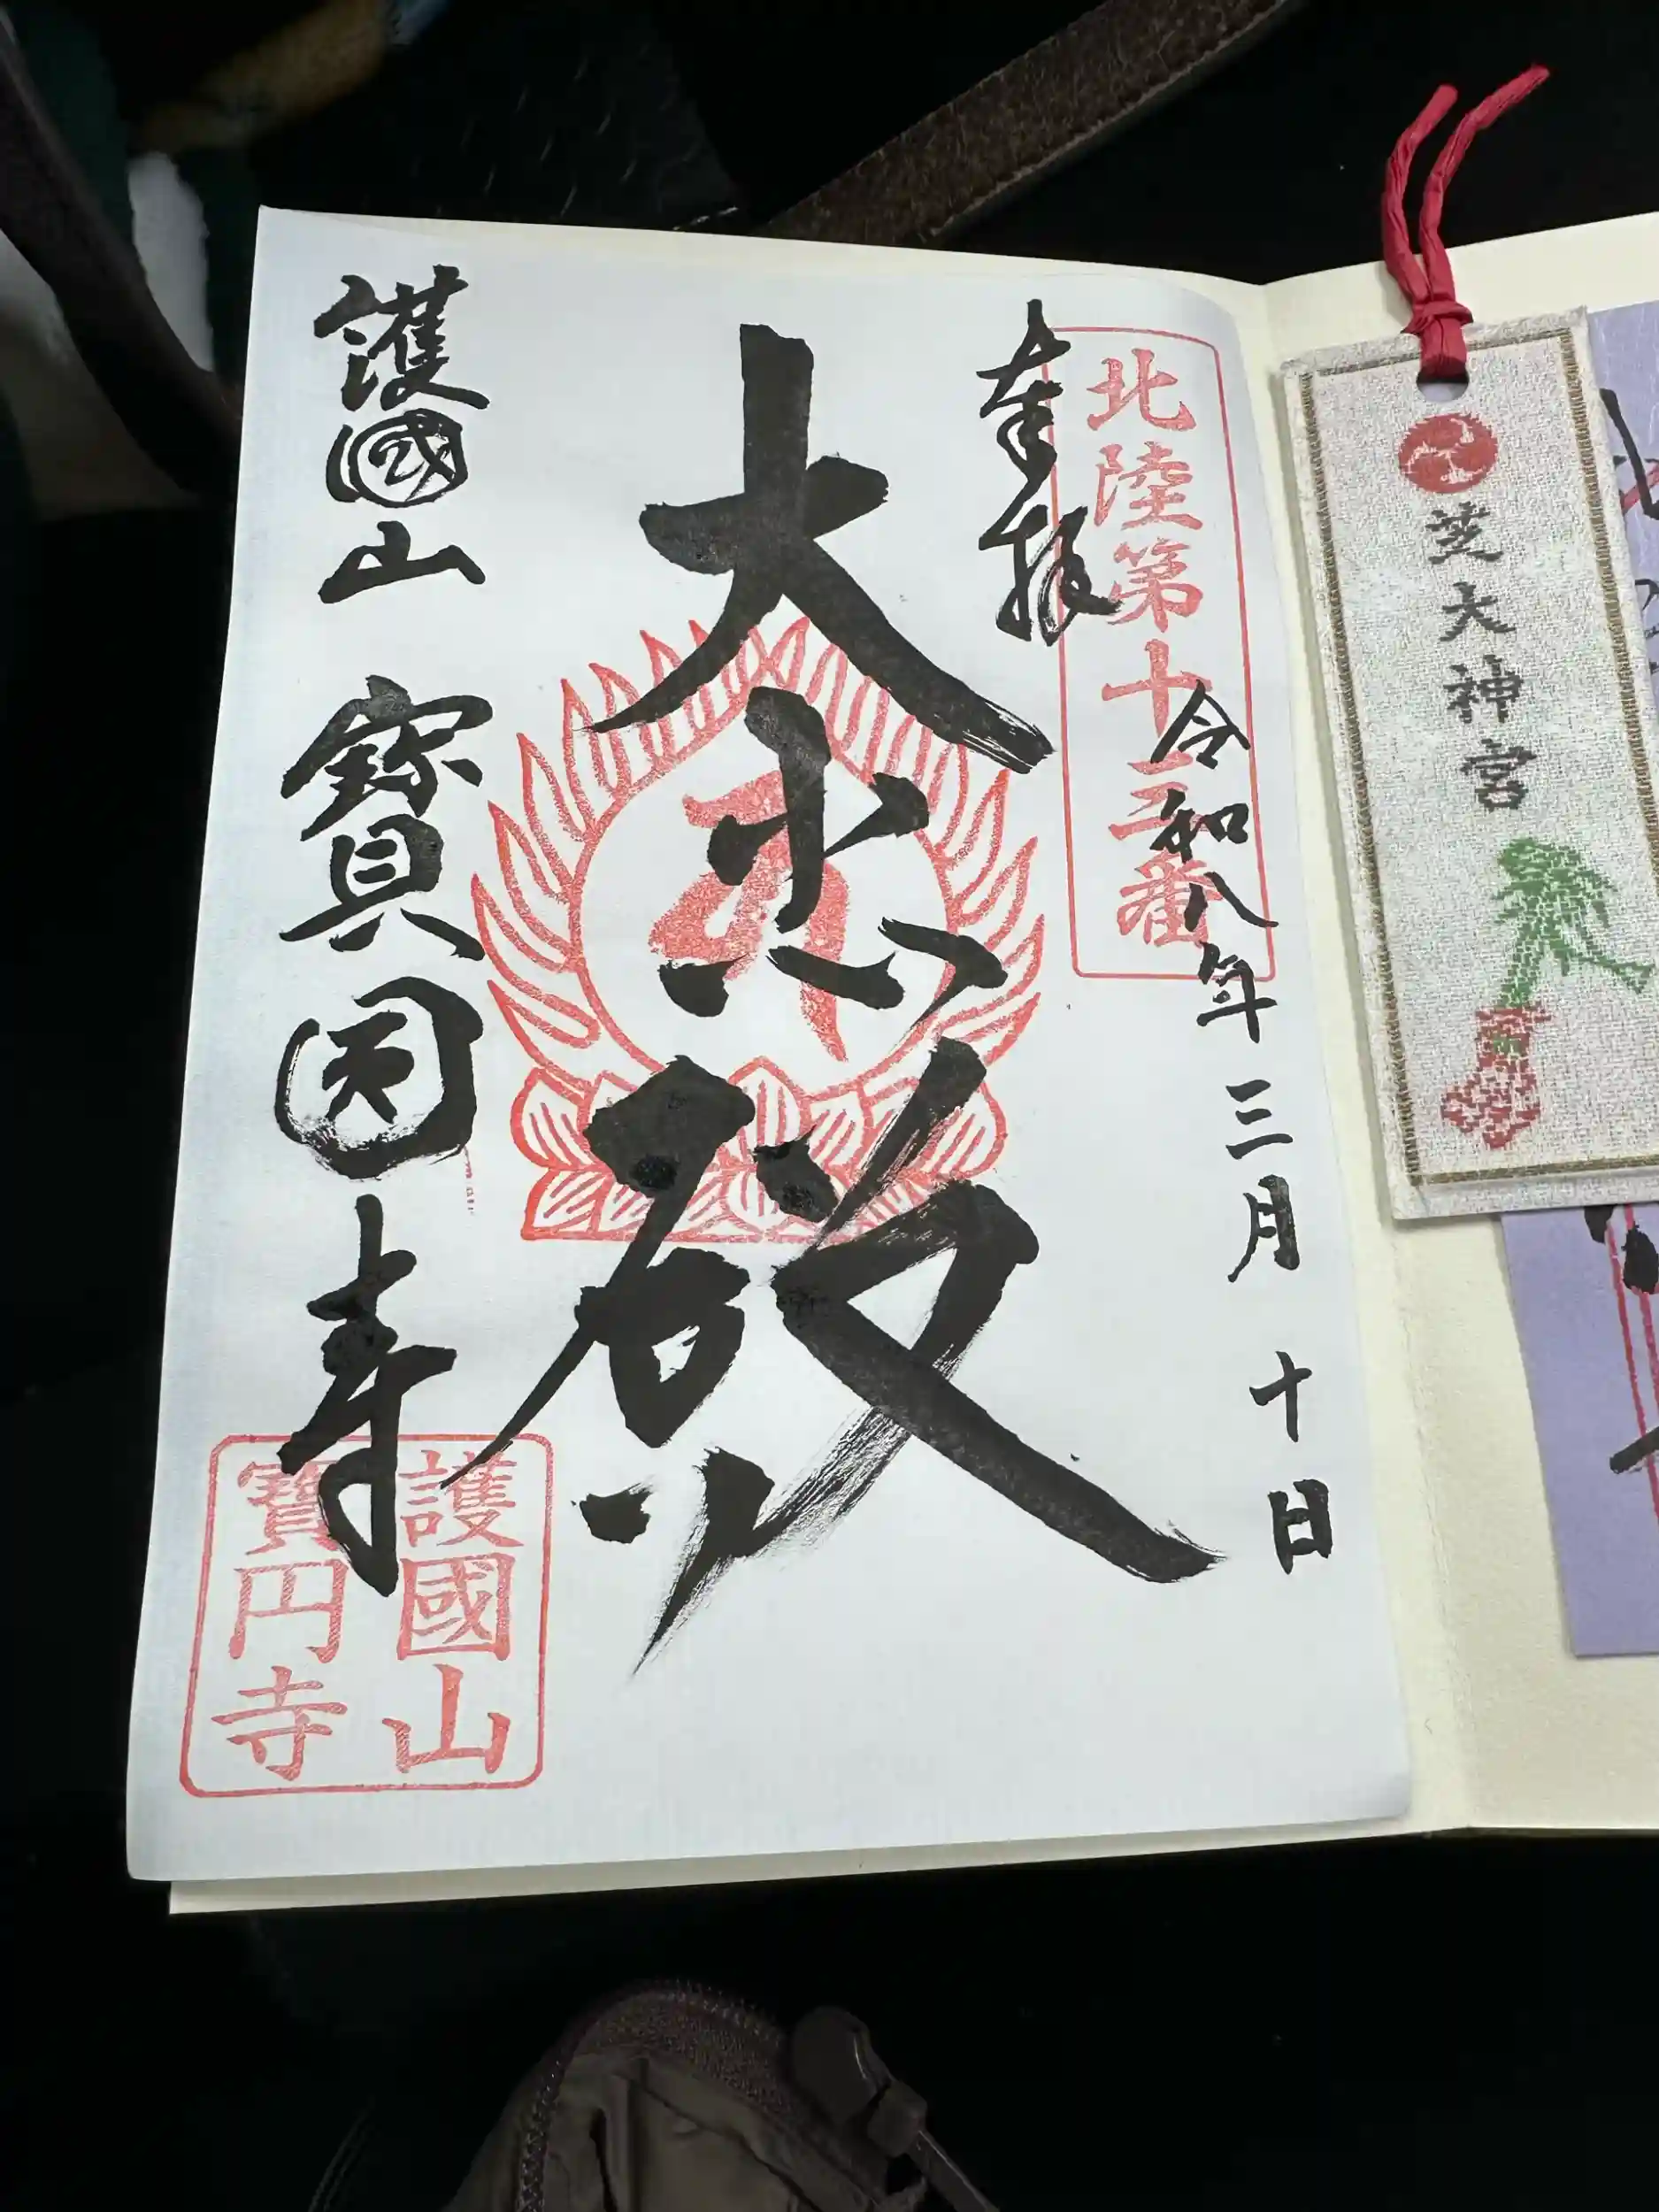 芝大神宮
北陸第十番
奉拝
令和八年三月十日
大悲殿
護國山 寶圓寺
護國山
寶円寺